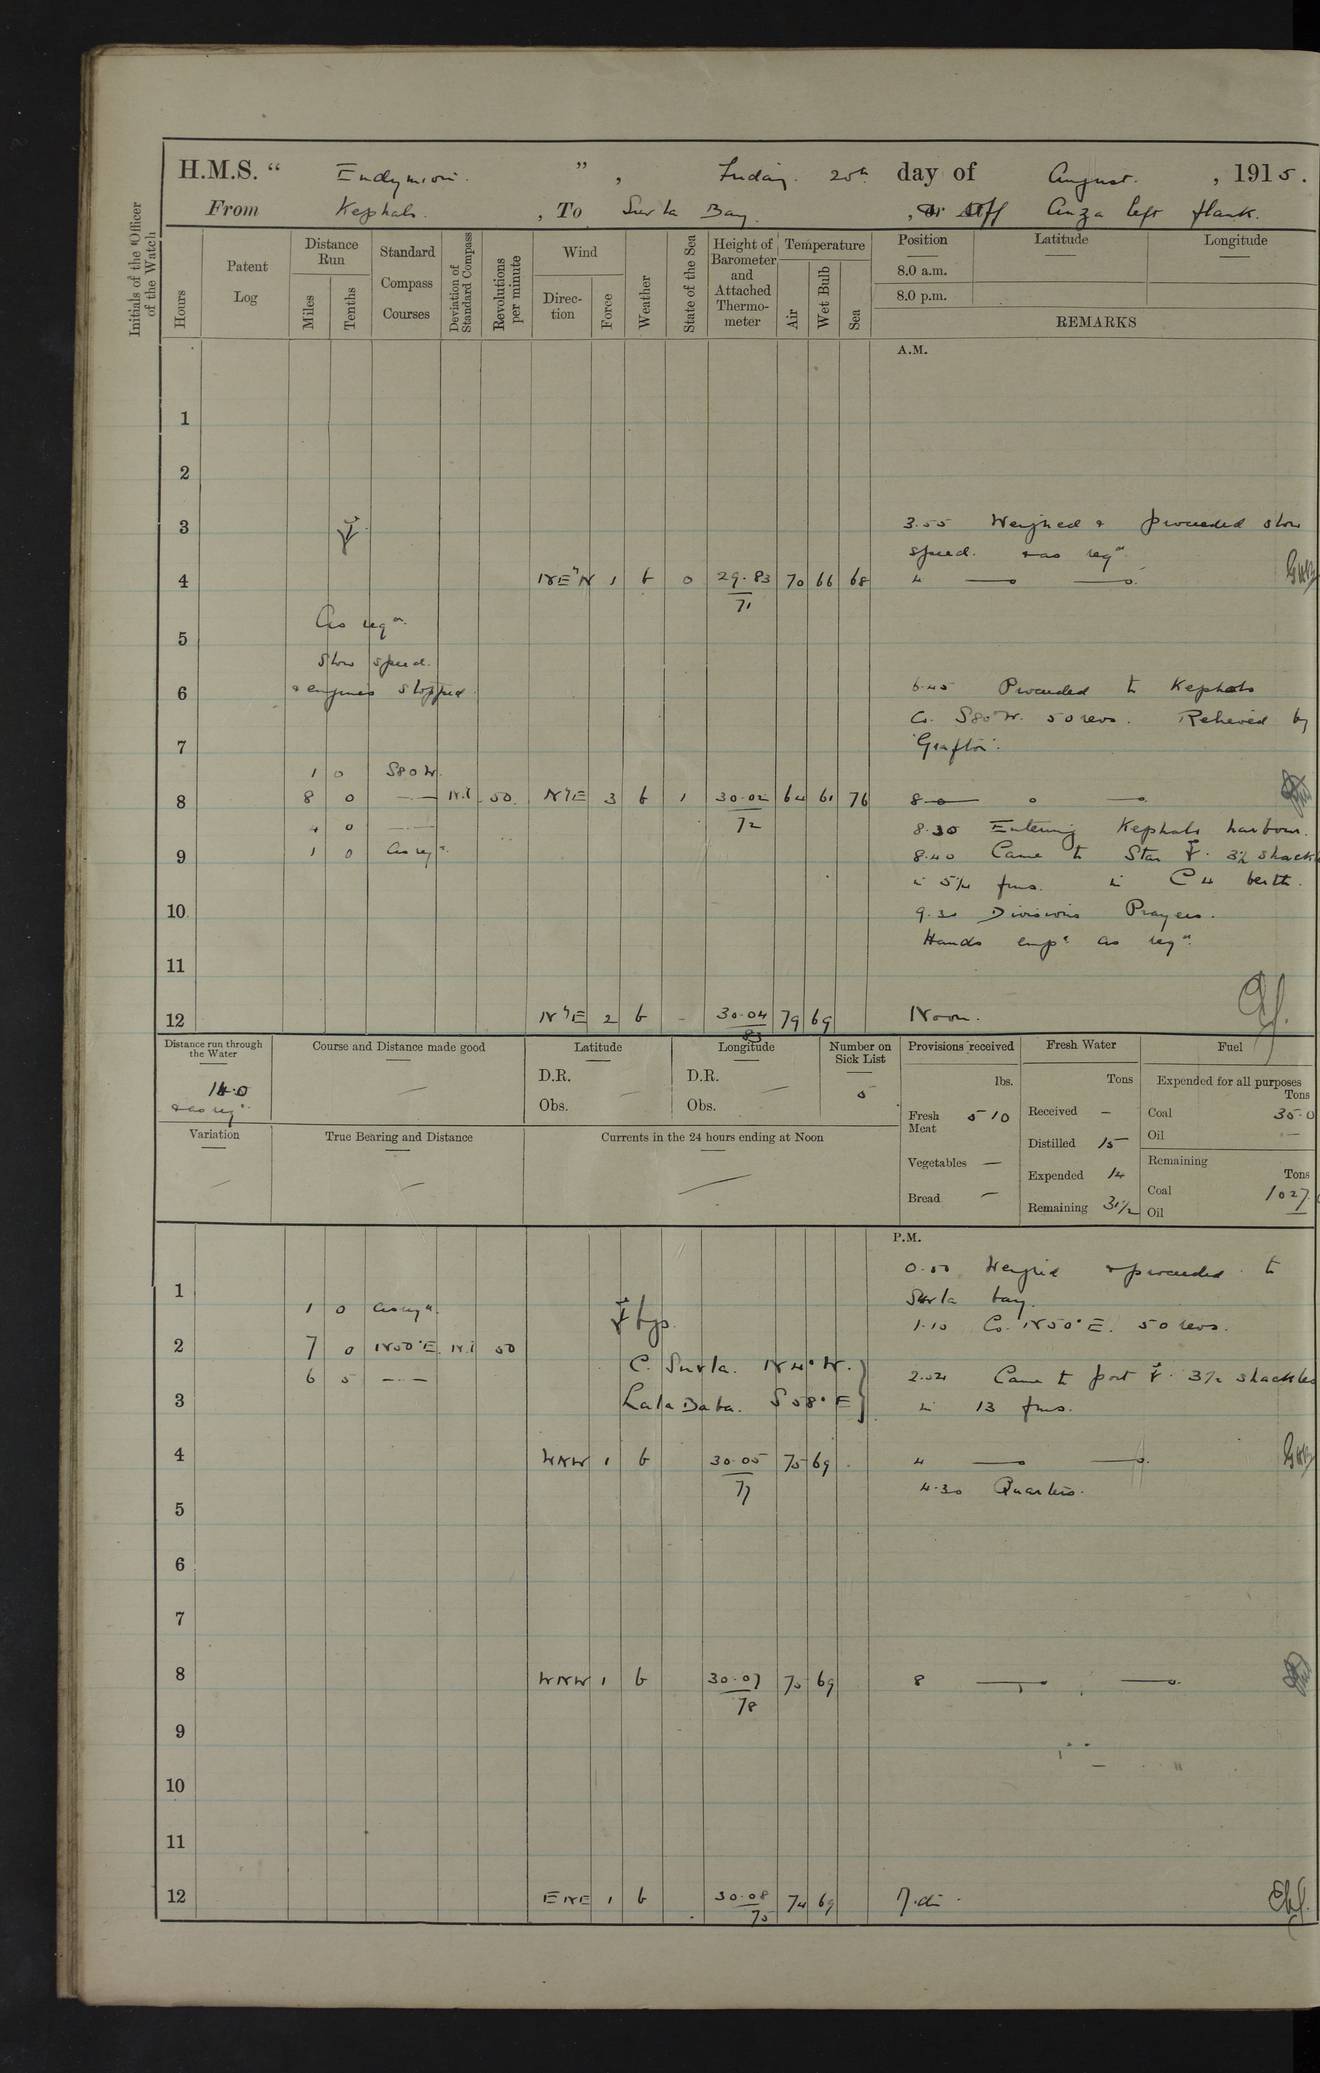 H.M.S. “ Endymion. ” , Friday. 20th day of August. , 1915.
From Kephalo. , To Suvla Bay. , or Off Anza left flank.
Initials of the Officer of the Watch
Hours
Patent Log
Distance Run
Miles
Tenths
Standard Compass Courses
Deviation of Standard Compass
Revolutions per minute
Wind
Direction
Force
Weather
State of the Sea
Height of Barometer and Attached Thermometer
Temperature
Air
Wet Bulb
Sea
Position
Latitude
Longitude
8.0 a.m.
8.0 p.m.
REMARKS
A.M.
1
2
3
3.55 Weighed & proceeded slow
speed. & as reqd.
4 NE'N 1 b 0 29.83 70 66 68 4
71
As reqd.
5
Slow speed.
6 & engines stopped
6.45 Proceeded to Kephalo
Co. S80°W. 50 revs. Relieved by
7 'Grafton'.
1 0 S80W.
8 8 0 — Nil 50. N'E 3 b 1 30.02 64 61 76 8
72
4 0 — 8.30 Entering Kephalo harbour.
9 1 0 As reqd. 8.40 Came to Star 3½ shackles
in 5¼ fms. in C4 berth.
10 9.30 Divisions Prayers.
Hands empd as reqd.
11
12 N'E 2 b - 30.04 79 69 Noon.
83
Distance run through the Water
14.0
& as reqd.
Course and Distance made good
Latitude
D.R.
Obs.
Longitude
D.R.
Obs.
Number on Sick List
5
Provisions received
lbs.
Fresh Meat 510
Vegetables —
Bread —
Fresh Water
Tons
Received —
Distilled 15
Expended 14
Remaining 31½
Fuel
Expended for all purposes
Tons
Coal 35.0
Oil —
Remaining
Tons
Coal 1027.
Oil —
Variation
True Bearing and Distance
Currents in the 24 hours ending at Noon
P.M.
0.50 Weighed & proceeded to
1 Suvla bay.
1 0 as reqd. bgs. 1.10 Co. N50°E. 50 revs.
2 7 0 N50°E. Nil 50
C. Suvla. N4°W.
6 5 — 2.04 Came to port 3½ shackles
3 Lala Baba. S58°E in 13 fms.
4 WNW 1 b 30.05 75 69 4
77
4.30 Quarters.
5
6
7
8 WNW 1 b 30.07 75 69 8
78
9
10
11
12 ENE 1 b 30.08 74 69
75